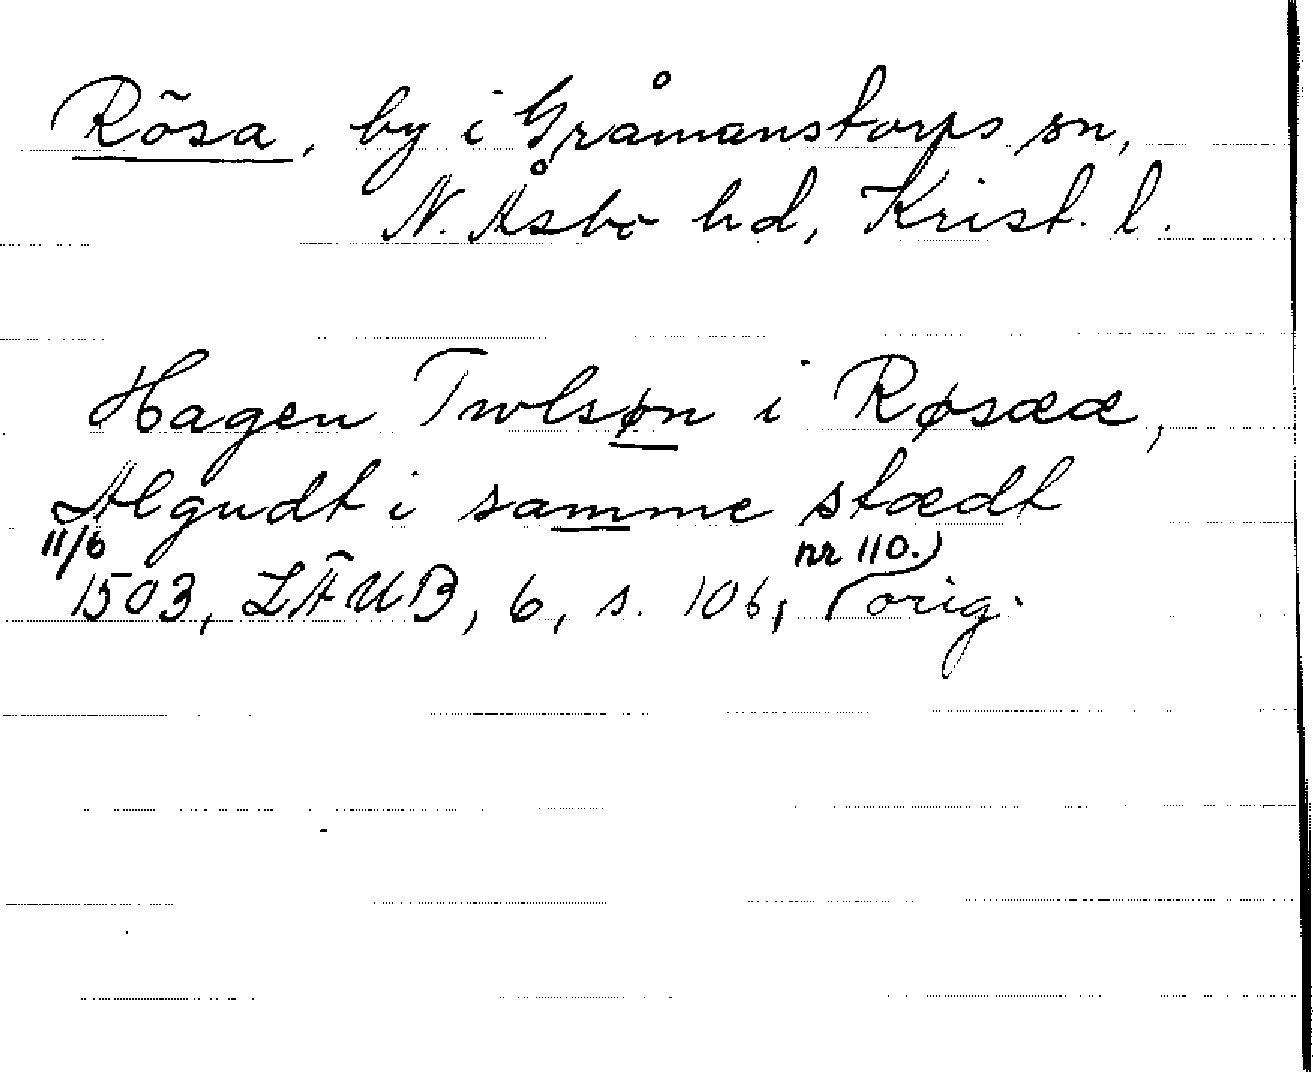 Rösa, by i Gråmanstorps sn,
N. Åsbo hd, Krist. l.
Hagen Trwlsøn i Røsææ,
Algudt i samme stædt
11/6 nr 110.)
1503, LÄUB, 6, s. 106, (orig.